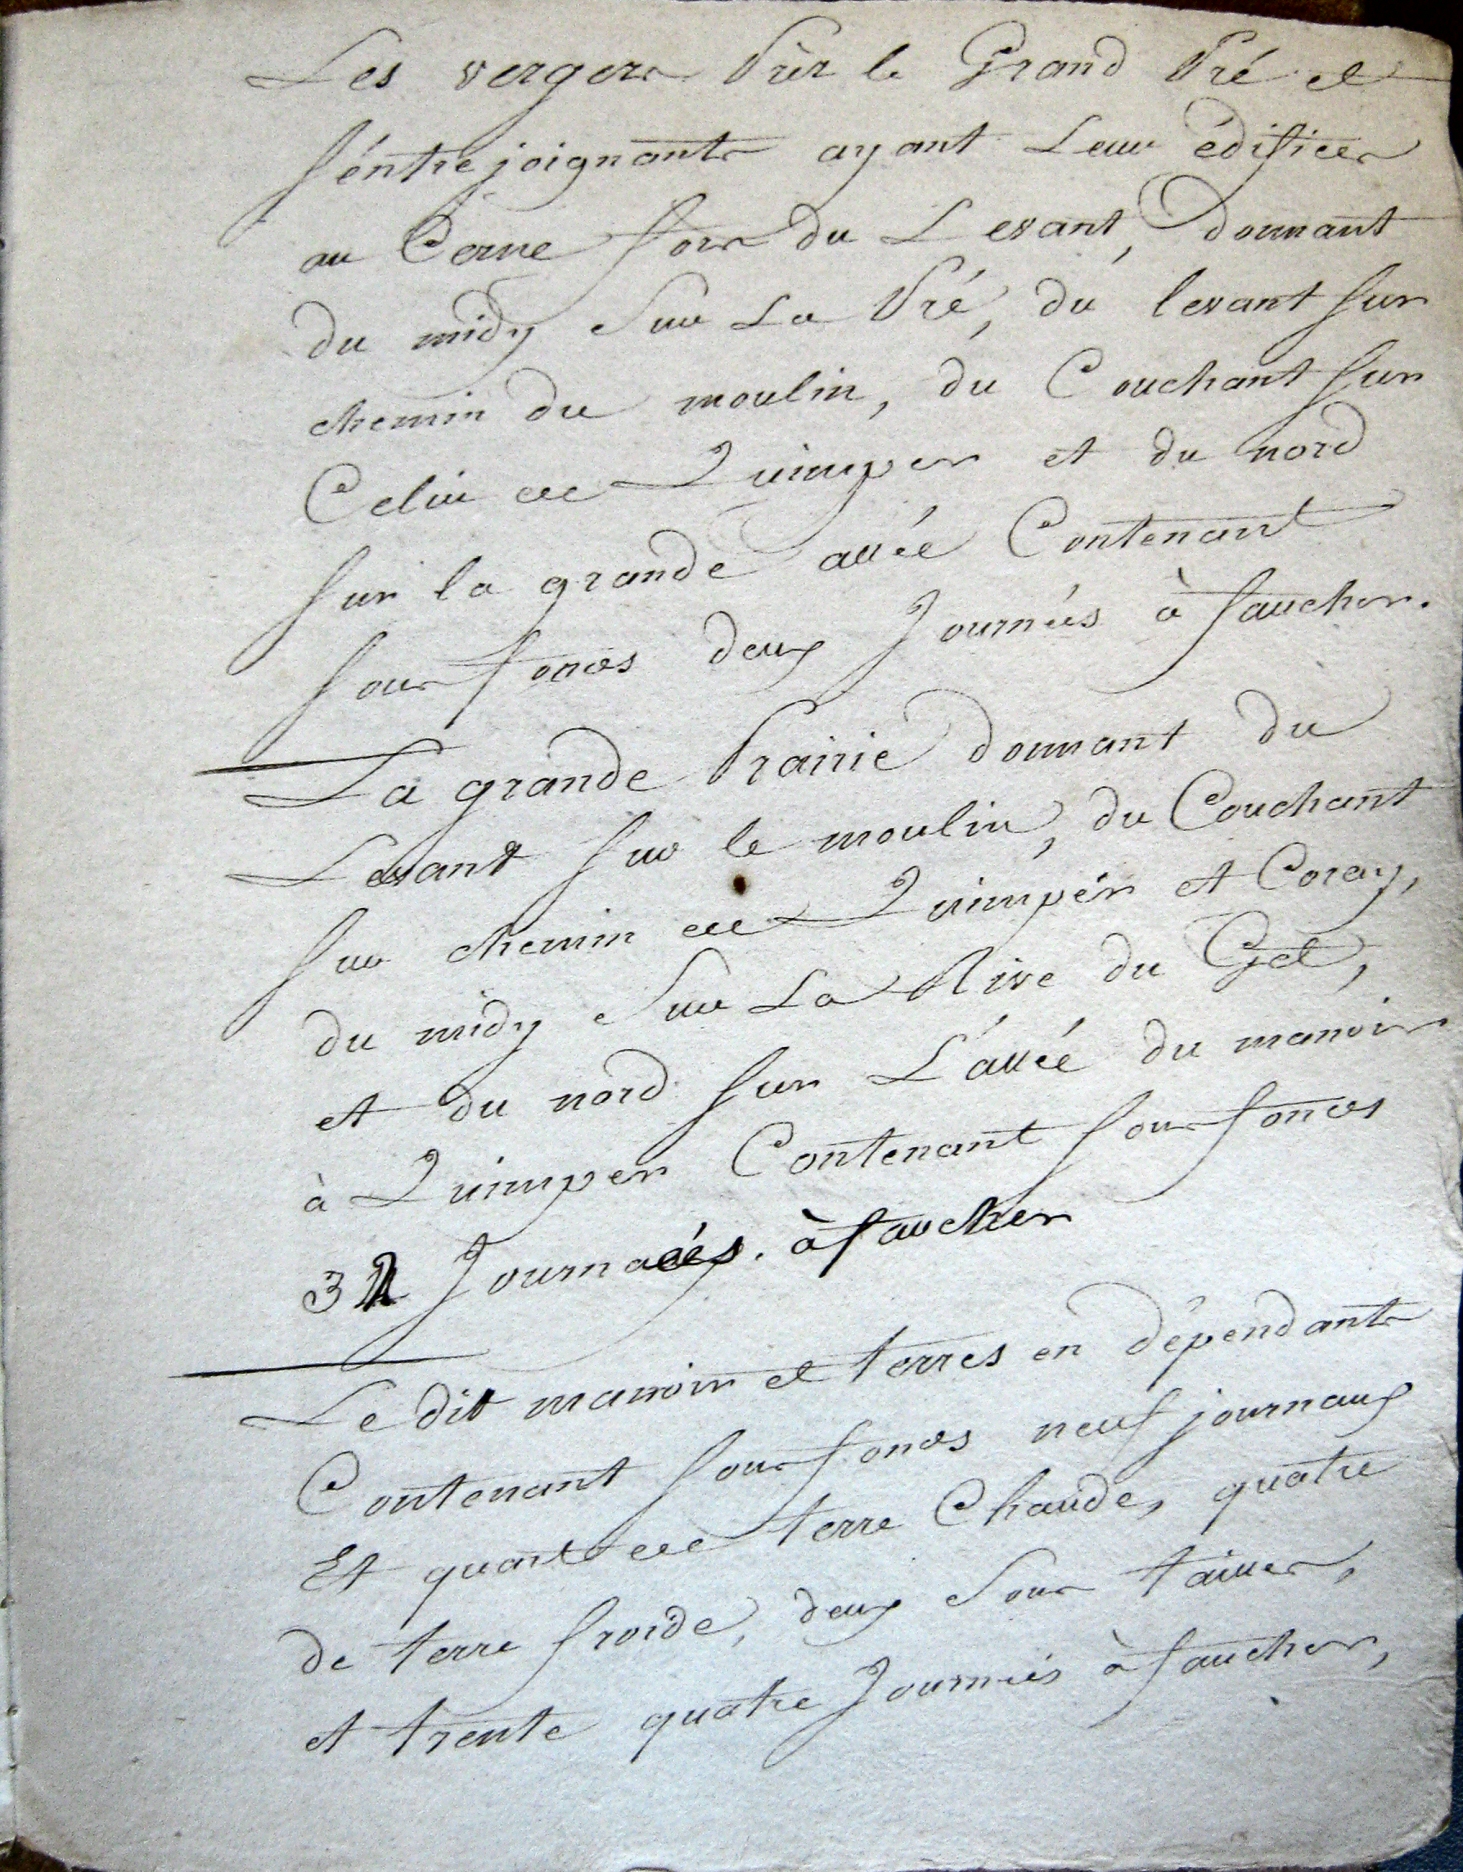 Les vergers Prez le Grand Pré et
s'éntrejoignants ayant Leur édifices
au Cerne fors du Levant, Donnant
du midy Sur La Pré, du levant sur
chemin du moulin, du Couchant sur
Celui de Quimper et du nord
sur la grande allée Contenant
sous fonds deux Journées à faucher.
La grande Prairie donnant du
Levant sur le moulin, du Couchant
sur chemin de Quimpér et Coray,
du midy Sur La Rive du Get,
et du nord sur L'allée du manoir
à Quimper Contenant sous fonds
32 Journées. à faucher
Le dit manoir et terres en dépendants
Contenant sous fonds neuf journaux
Et quart de terre Chaude, quatre
de terre froide, deux Sous taillis,
et trente quatre Journées à faucher,